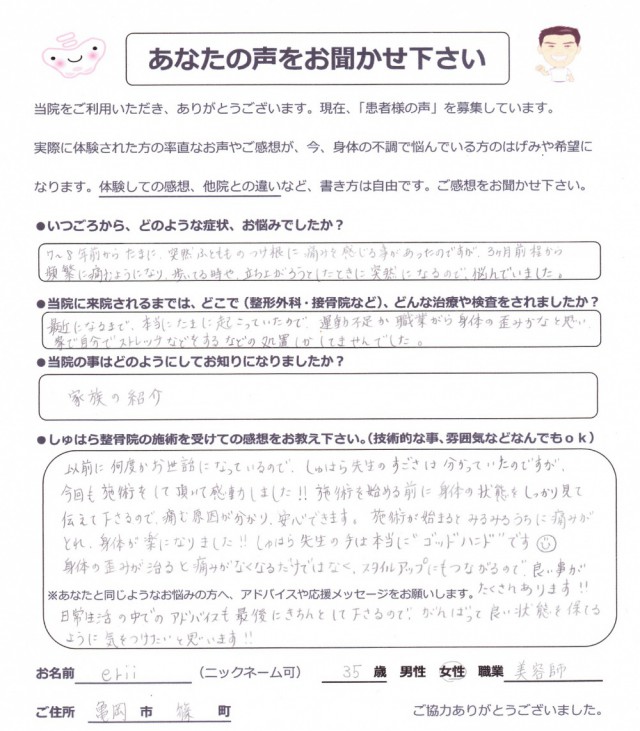 あなたの声をお聞かせ下さい
当院をご利用いただき、ありがとうございます。現在、「患者様の声」を募集しています。
実際に体験された方の率直なお声やご感想が、今、身体の不調で悩んでいる方のはげみや希望に
なります。体験しての感想、他院との違いなど、書き方は自由です。ご感想をお聞かせ下さい。
●いつごろから、どのような症状、お悩みでしたか？
7〜8年前からたまに、突然ふとももの つけ根に 痛みを感じる事があったのですが、3ヶ月前程から
頻繁に痛むようになり、歩いてる時や、立ち上がろうとしたときに突然になるので、悩んでいました。
●当院に来院されるまでは、どこで（整形外科・接骨院など）、どんな治療や検査をされましたか？
最近になるまで、本当にたまに起こっていたので、運動不足か 職業がら身体の歪みかなと思い、
家で自分でストレッチなどをする などの 処置しかしてませんでした。
●当院の事はどのようにしてお知りになりましたか？
家族の紹介
●しゅはら整骨院の施術を受けての感想をお教え下さい。（技術的な事、雰囲気などなんでもｏｋ）
以前に何度かお世話になっているので、しゅはら先生のすごさは分かっていたのですが、
今回も施術をして頂いて感動しました!! 施術を始める前に身体の状態をしっかり見て
伝えて下さるので、痛む原因が分かり、安心できます。施術が始まるとみるみるうちに痛みが
とれ、身体が楽になりました!! しゅはら先生の手は本当に"ゴッドハンド"です
身体の歪みが治ると痛みがなくなるだけではなく、スタイルアップにもつながるので、良い事が
たくさんあります!!
※あなたと同じようなお悩みの方へ、アドバイスや応援メッセージをお願いします。
日常生活の中でのアドバイスも最後にきちんとして下さるので、がんばって良い状態を保てる
ように気をつけたいと思います!!
お名前 erii （ニックネーム可） 35 歳 男性 女性 職業 美容師
ご住所 亀岡 市 篠 町 ご協力ありがとうございました。